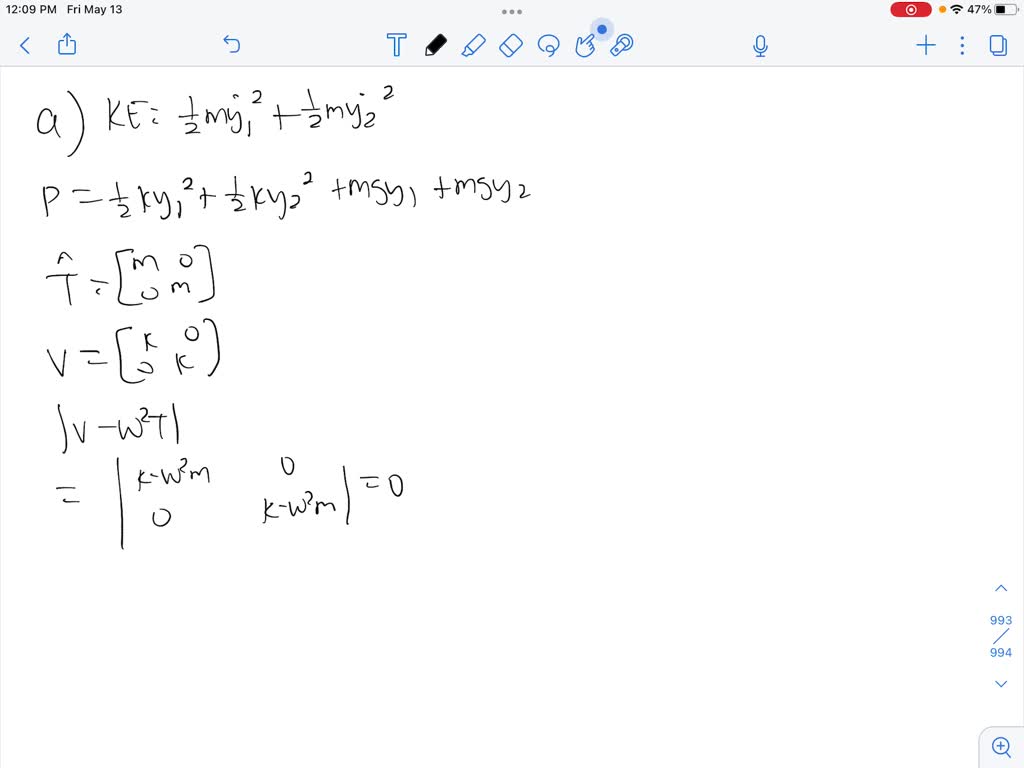 12:09 PM Fri May 13
47%
T
a) KE = 1/2 mẏ₁² + 1/2 mẏ₂²
P = 1/2 ky₁² + 1/2 ky₂² + mgy₁ + mgy₂
T̂ = [m 0
0 m]
V = [k 0
0 k]
|V - w²T|
= |k-w²m 0
0 k-w²m| = 0
993
994